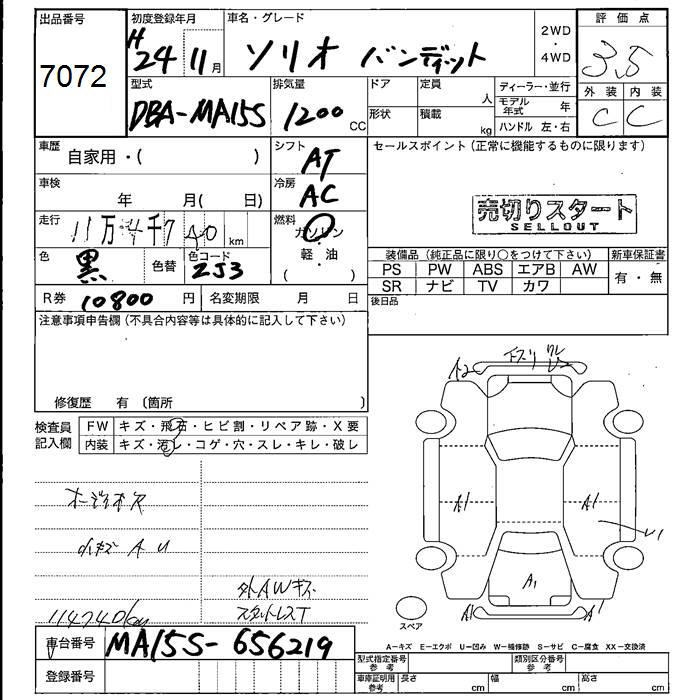 出品番号 初度登録年月 車名・グレード 2WD・4WD 評価点
7072 H24 11月 ソリオ バンディット 3.5
型式 排気量 ドア 定員 人 ディーラー・並行 外装 内装
DBA-MA15S 1200cc 形状 積載 kg モデル年式 年 C C
ハンドル 左・右
車歴 自家用・( ) シフト AT セールスポイント(正常に機能するものに限ります)
車検 年 月( 日) 冷房 AC
売切りスタート
SELLOUT
走行 11万4千740km 燃料 ガソリン・軽油( )
色 黒 色替 色コード ZJ3
装備品(純正品に限り○をつけて下さい) 新車保証書
PS PW ABS エアB AW 有・無
SR ナビ TV カワ
R券 10800円 名変期限 月 日 後日品
注意事項申告欄(不具合内容等は具体的に記入して下さい)
修復歴 有 〔箇所 〕
検査員記入欄 FW キズ・飛石・ヒビ割・リペア跡・X要
内装 キズ・汚レ・コゲ・穴・スレ・キレ・破レ
下スリ
A2
A1 A1
A1
A1 A1
オーディオ欠
小キズ A U
外AWキズ
スタットレスT
114740km
スペア
A-キズ E-エクボ U-凹み W-補修跡 S-サビ C-腐食 XX-交換済
車台番号 MA15S-656219
型式指定番号 参考 類別区分番号 参考
登録番号
車庫証明用 参考 長さ cm 幅 cm 高さ cm